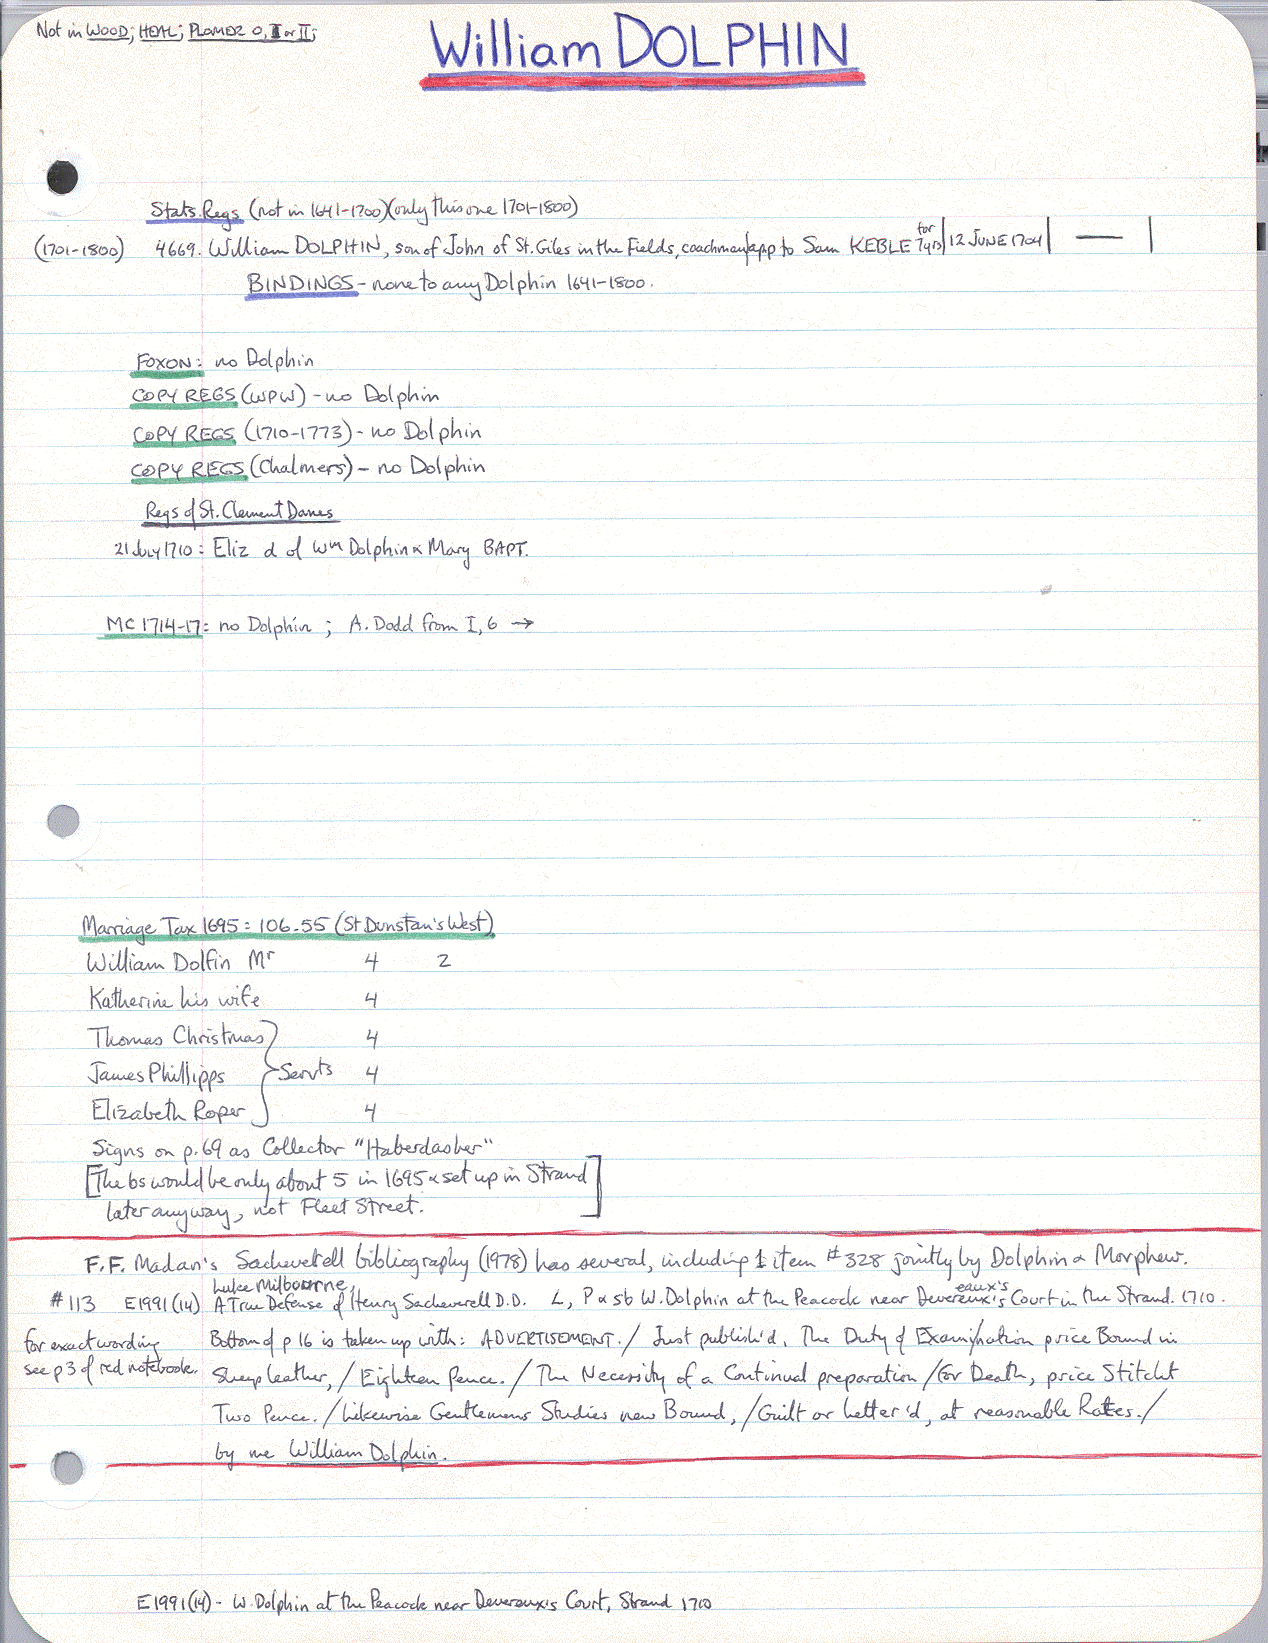 Not in WOOD; HEAL; PLOMER O, I or II;
William DOLPHIN
Stats. Regs (not in 1641-1700)(only this one 1701-1800)
(1701-1800) 4669. William DOLPHIN, son of John of St. Giles in the Fields, coachman/app to Sam KEBLE for 7yrs | 12 JUNE 1704 | — |
BINDINGS - none to any Dolphin 1641-1800.
FOXON: no Dolphin
COPY REGS (WPW) - no Dolphin
COPY REGS (1710-1773) - no Dolphin
COPY REGS (Chalmers) - no Dolphin
Regs of St. Clement Danes
21 July 1710: Eliz d of Wm Dolphin & Mary BAPT.
MC 1714-17: no Dolphin; A. Dodd from I, 6 →
Marriage Tax 1695: 106.55 (St Dunstan's West)
William Dolfin Mr 4 2
Katherine his wife 4
Thomas Christmas 4
James Phillipps } Servts 4
Elizabeth Roper 4
Signs on p.69 as Collector "Haberdasher"
[The bs would be only about 5 in 1695 & set up in Strand
later anyway, not Fleet Street.]
F.F. Madan's Sacheverell bibliography (1978) has several, including 1 item #328 jointly by Dolphin & Morphew.
Luke Milbourne,
#113 E1991(14) A True Defense of Henry Sacheverell D.D. L, P & sb W. Dolphin at the Peacock near Devereux's eaux's Court in the Strand. 1710.
for exact wording see p3 of red notebook.
Bottom of p 16 is taken up with: ADVERTISEMENT. / Just publish'd, The Duty of Exami/nation price Bound in
Sheep leather, / Eighteen Pence. / The Necessity of a Continual preparation / for Death, price Stitcht
Two Pence. / Likewise Gentlemens Studies new Bound, / Guilt or letter'd, at reasonable Rates. /
by me William Dolphin.
E1991(14) - W. Dolphin at the Peacock near Devereux's Court, Strand 1710